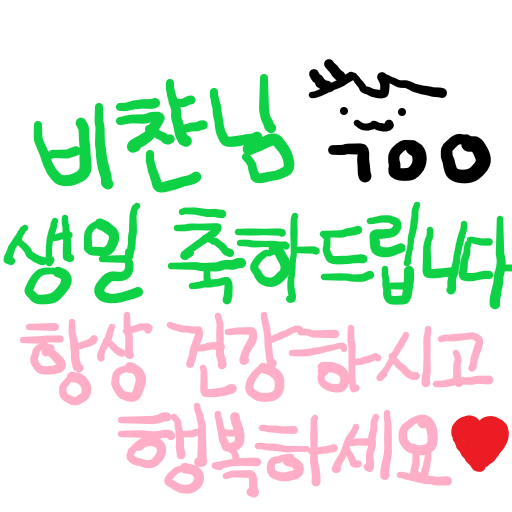 비챤님 ㄱㅇㅇ
생일 축하드립니다
항상 건강하시고
행복하세요